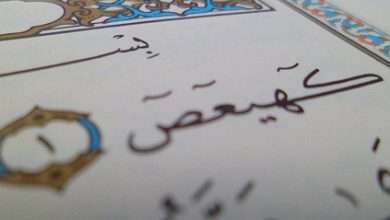 بِسْ
كهيعص ١